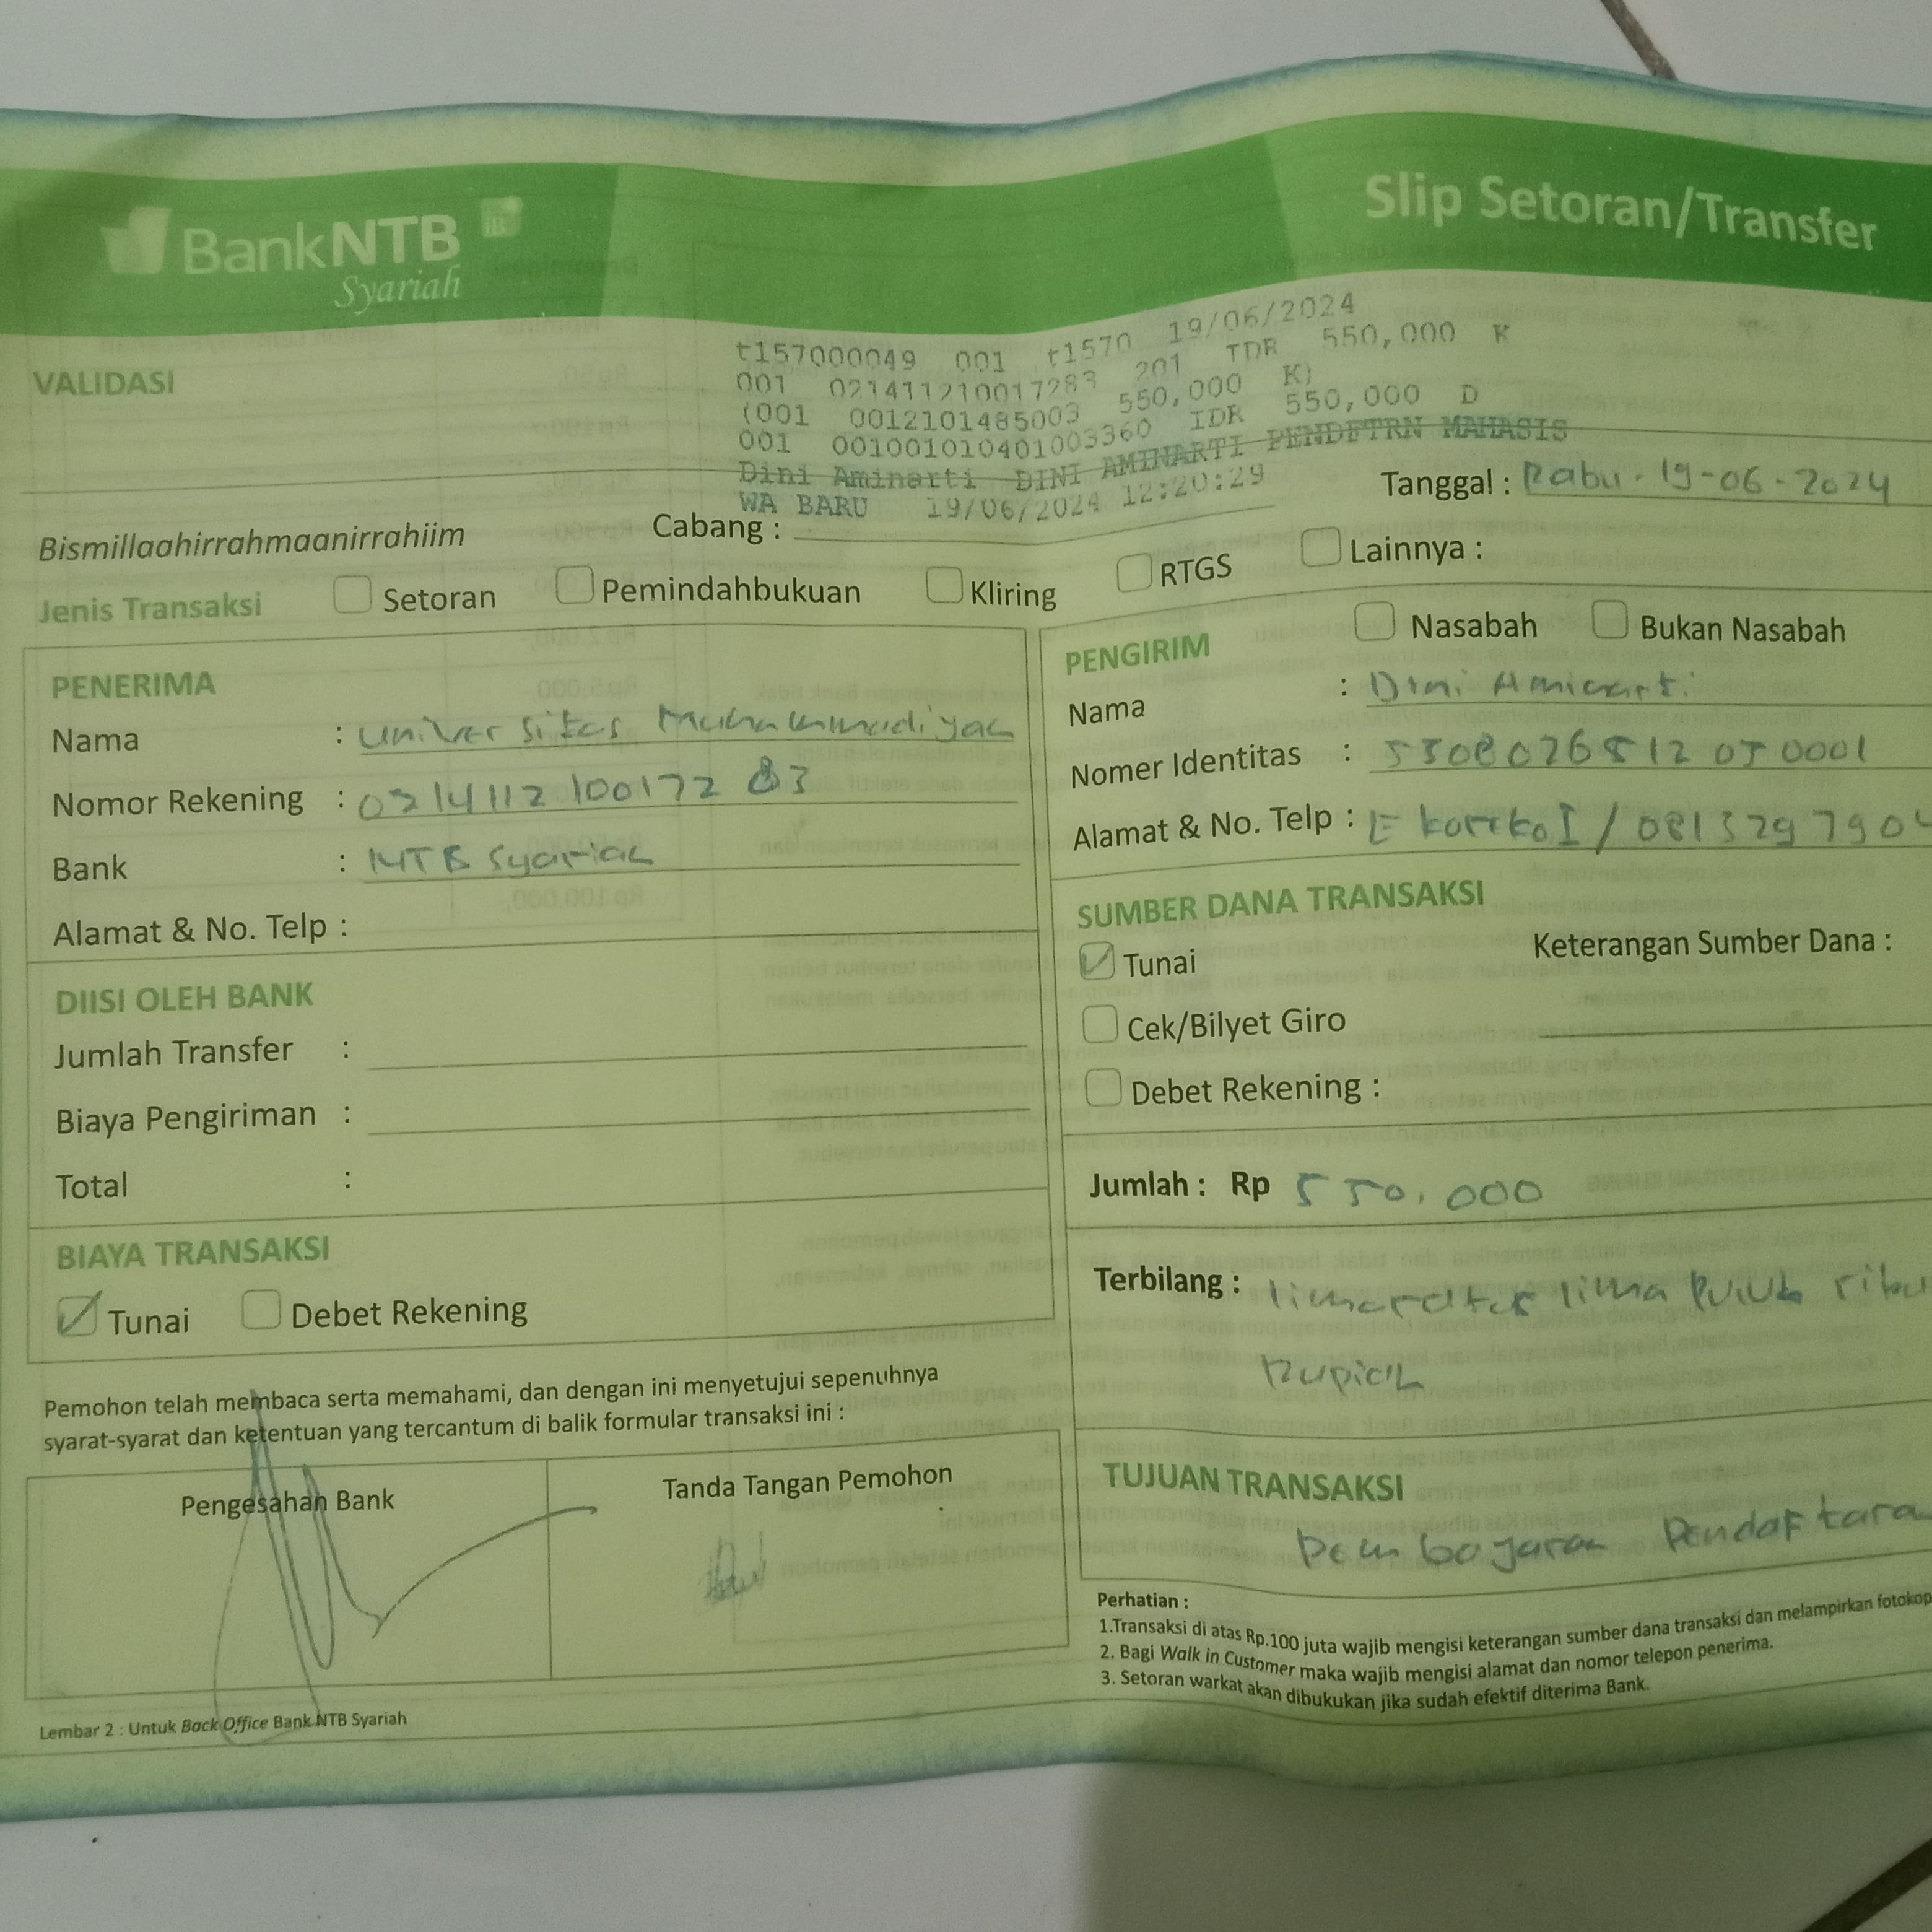 BankNTB
Syariah
Slip Setoran/Transfer
VALIDASI
t157000049 001 t1570 19/06/2024
001 021411210017283 201 TDR 550,000 K
(001 0012101485003 550,000 K)
001 001001010401003360 IDR 550,000 D
Dini Aminarti DINI AMINARTI PENDFTRN MAHASIS
WA BARU 19/06/2024 12:20:29
Tanggal : Rabu - 19-06-2024
Bismillaahirrahmaanirrahiim
Cabang :
Jenis Transaksi Setoran Pemindahbukuan Kliring RTGS Lainnya :
PENERIMA
Nama : Universitas Muhammadiyah
Nomor Rekening : 0214112100172 83
Bank : NTB Syariah
Alamat & No. Telp :
DIISI OLEH BANK
Jumlah Transfer :
Biaya Pengiriman :
Total :
BIAYA TRANSAKSI
Tunai Debet Rekening
Pemohon telah membaca serta memahami, dan dengan ini menyetujui sepenuhnya
syarat-syarat dan ketentuan yang tercantum di balik formular transaksi ini :
Pengesahan Bank
Tanda Tangan Pemohon
Lembar 2 : Untuk Back Office Bank NTB Syariah
PENGIRIM Nasabah Bukan Nasabah
Nama : Dini Aminarti
Nomer Identitas :
Alamat & No. Telp :
SUMBER DANA TRANSAKSI
Tunai
Keterangan Sumber Dana :
Cek/Bilyet Giro
Debet Rekening :
Jumlah : Rp 550.000
Terbilang : limaratus lima Puluh ribu
Rupiah
TUJUAN TRANSAKSI
Pembayaran Pendaftara
Perhatian :
1.Transaksi di atas Rp.100 juta wajib mengisi keterangan sumber dana transaksi dan melampirkan fotokop
2. Bagi Walk in Customer maka wajib mengisi alamat dan nomor telepon penerima.
3. Setoran warkat akan dibukukan jika sudah efektif diterima Bank.